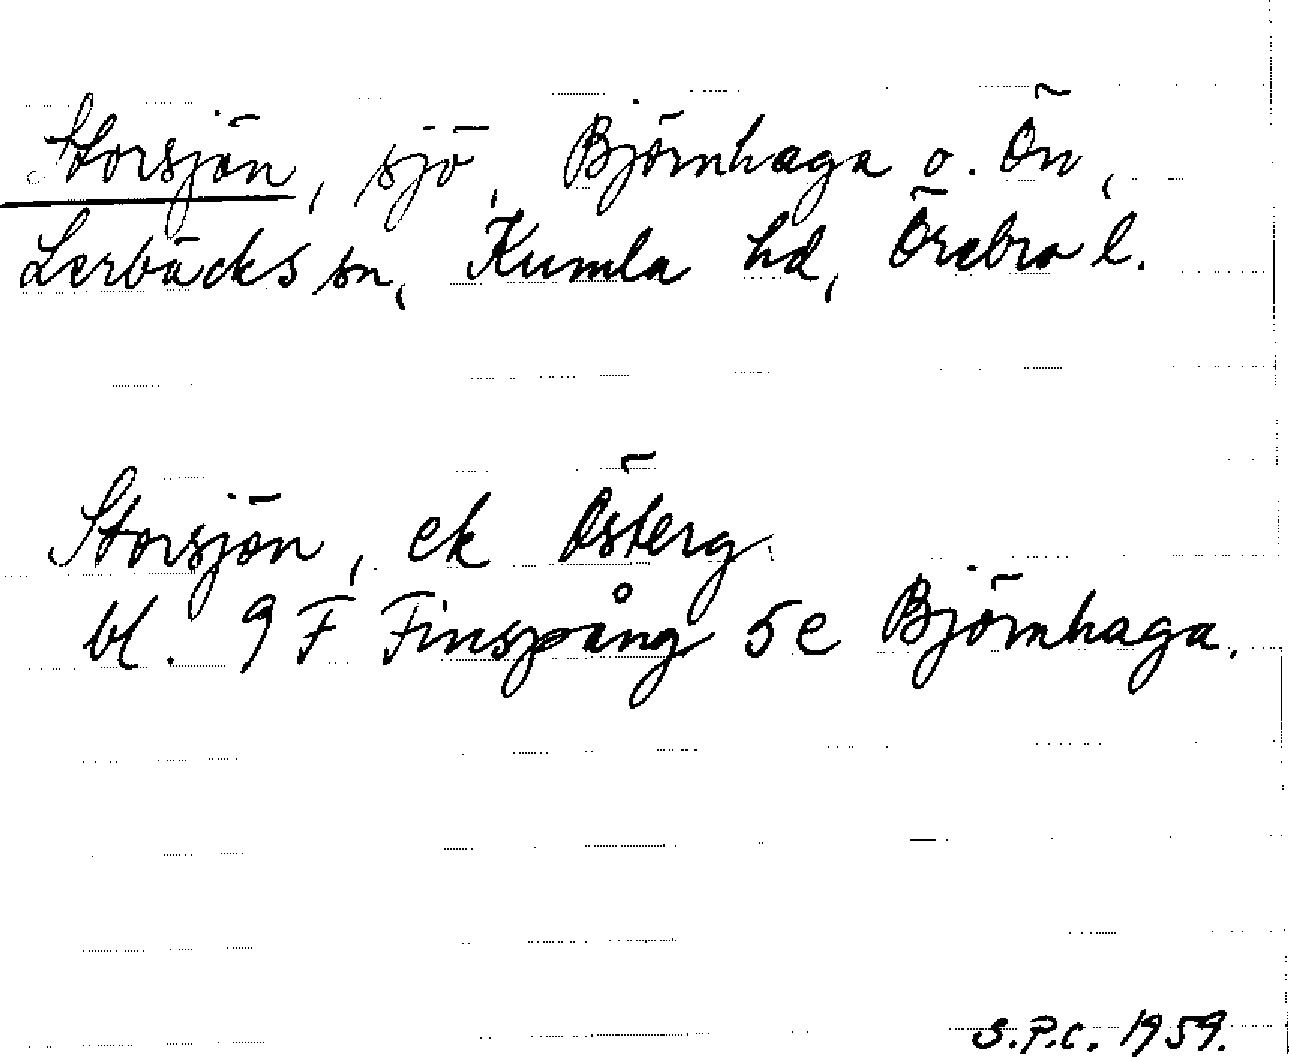 Storsjön, sjö, Björnhaga o. Ön,
Lerbäcks sn, Kumla hd, Örebro l.
Storsjön, ek Österg
bl. 9 F Finspång 5e Björnhaga.
S.P.C. 1959.